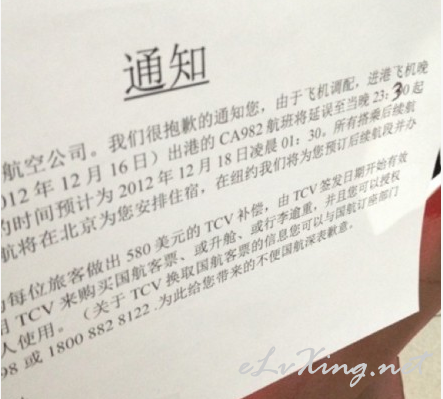 通知
航空公司。我们很抱歉的通知您，由于飞机调配，进港飞机晚
012年12月16日）出港的CA982航班将延误至当晚23:30起
的时间预计为2012年12月18日凌晨01:30。所有搭乘后续航
航将在北京为您安排住宿，在纽约我们将为您预订后续航段并办
每位旅客做出580美元的TCV补偿，由TCV签发日期开始有效
TCV来购买国航客票、或升舱、或行李逾重，并且您可以授权
人使用。（关于TCV换取国航客票的信息您可以与国航订座部门
98或1800 882 8122.为此给您带来的不便国航深表歉意。
eLvXing.net